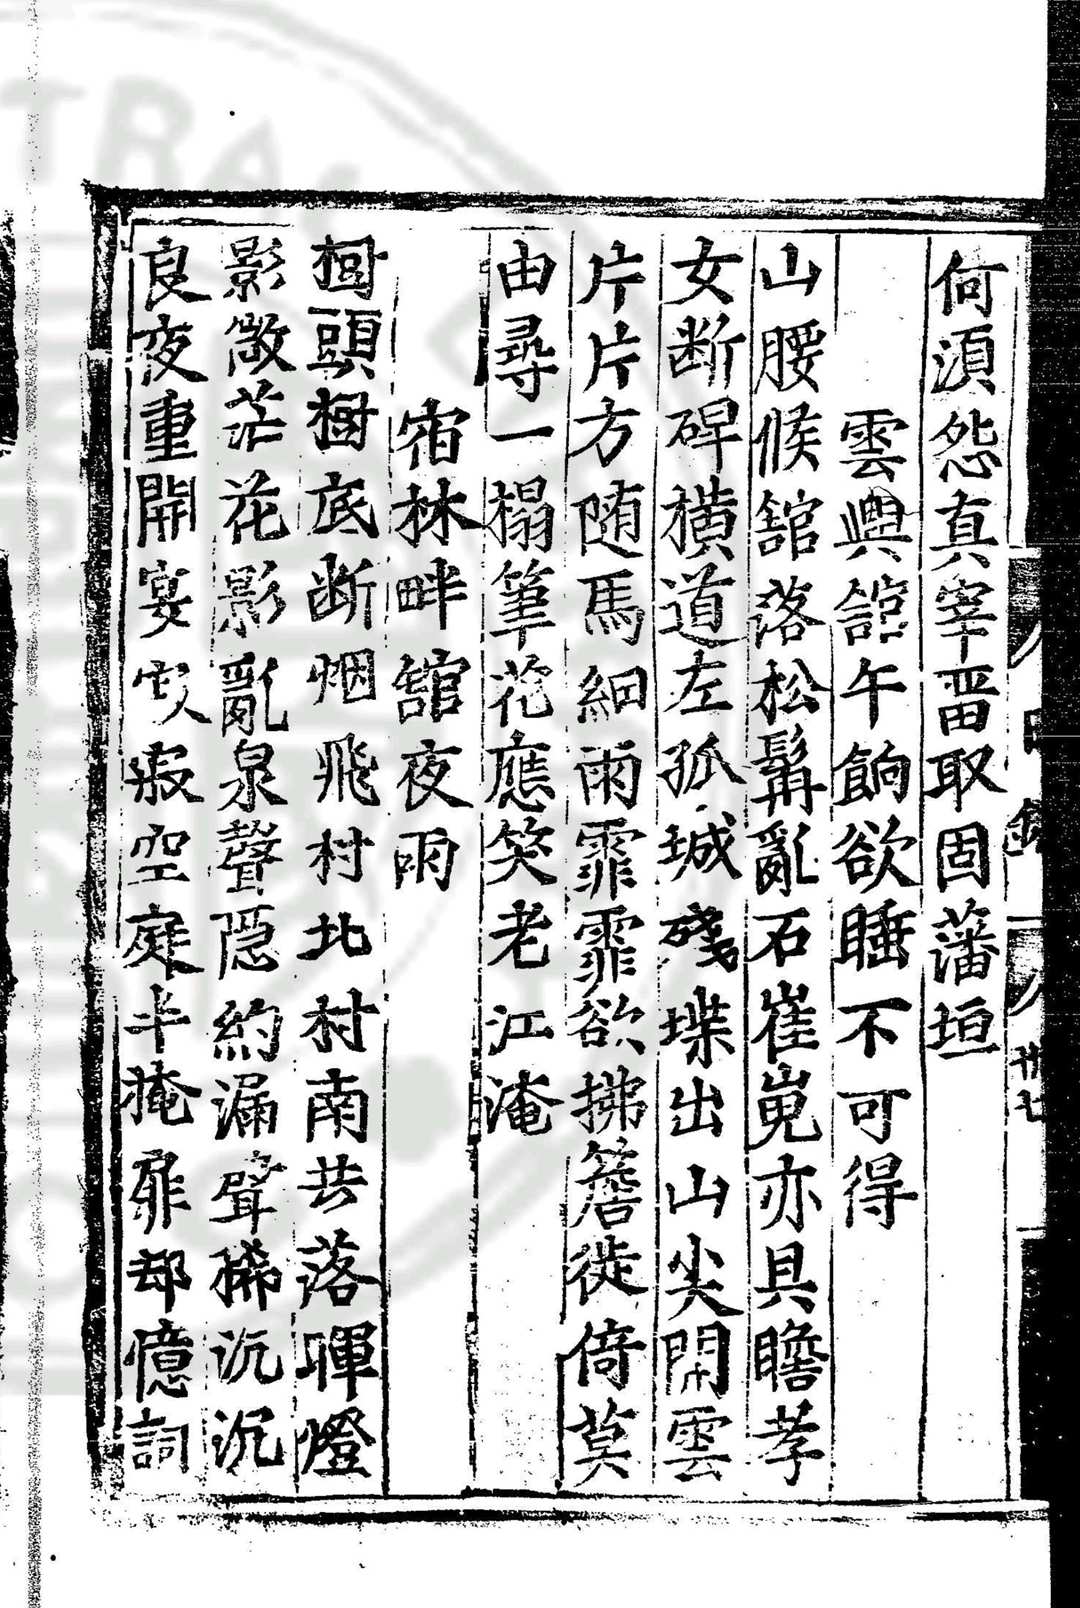 何須怨真宰畱取固藩垣
雲興舘午餉欲睡不可得
山腰候舘落松髯亂石崔嵬亦具瞻孝
女断碑横道左孤城殘堞出山尖閒雲
片片方随馬細雨霏霏欲拂簷徙倚莫
由尋一榻筆花應笑老江淹
宿林畔舘夜雨
樹頭樹底断烟飛村北村南共落暉燈
影微茫花影亂泉聲隠約漏聲稀沉沉
良夜重開宴寂寂空庭半掩扉却憶詞
日錄
廿七